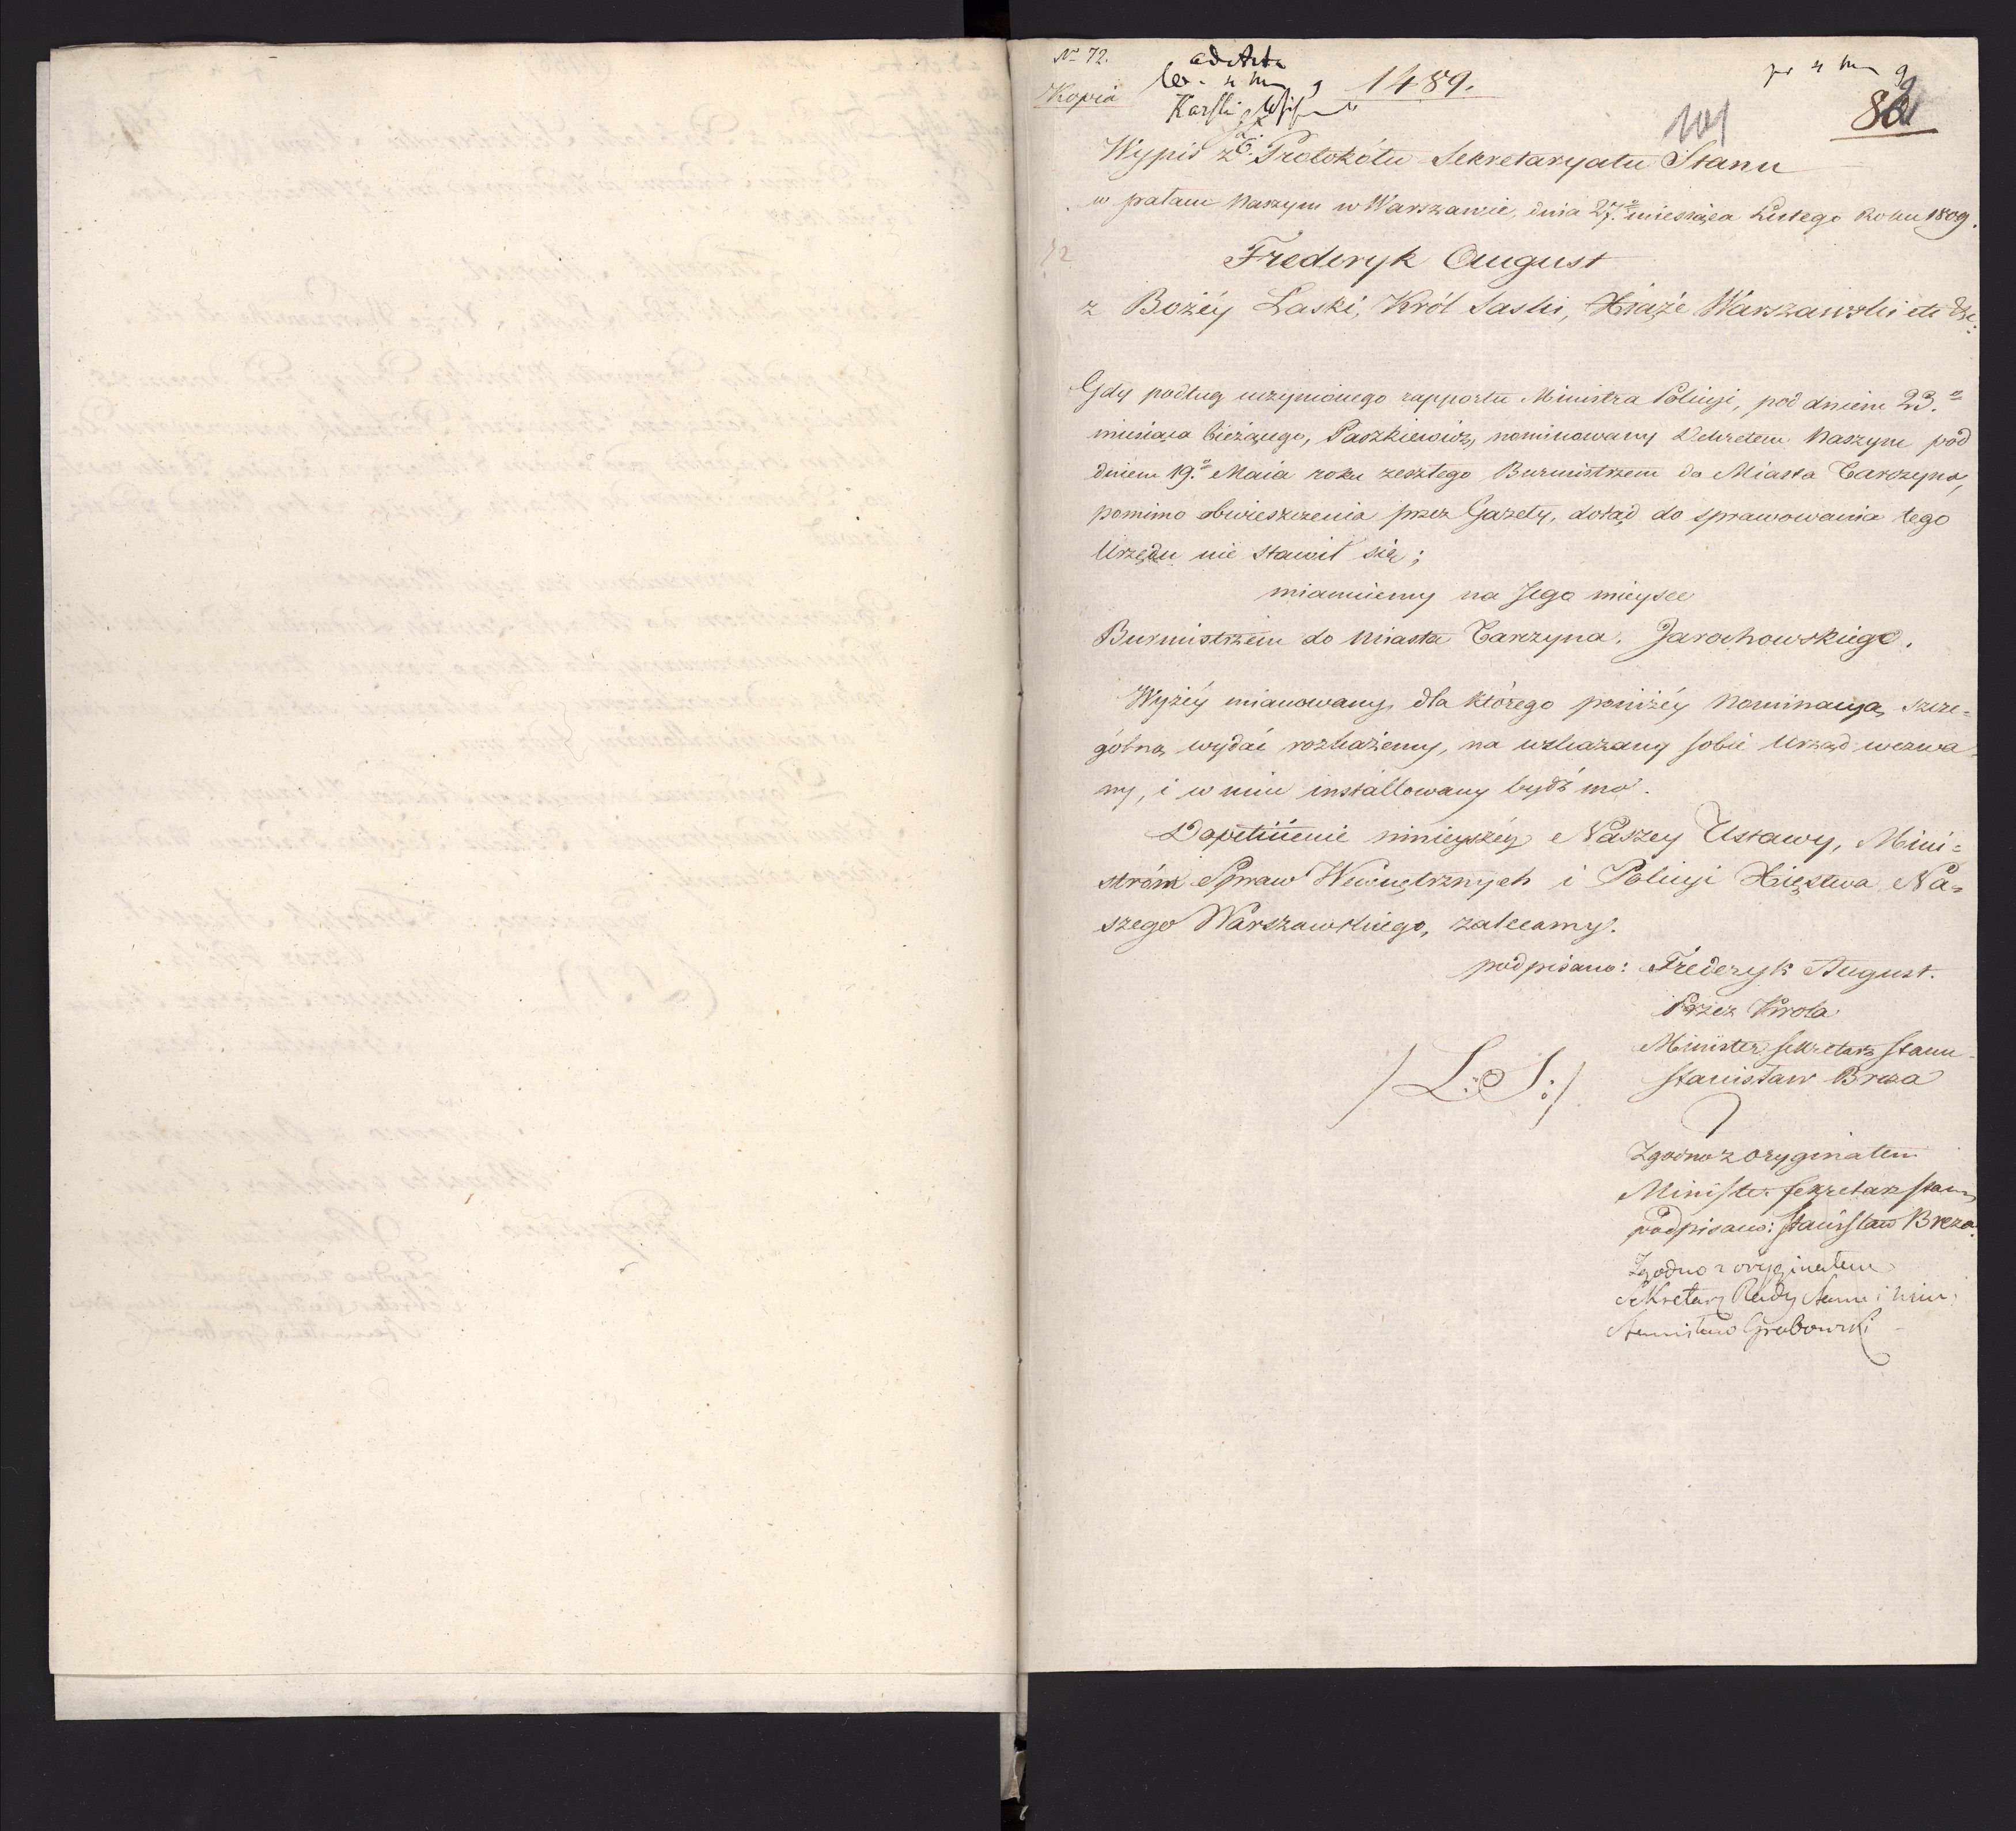 No 72.
ad Acta
1489.
Kopia
Karski
101
Wypis z Protokółu Sekretaryatu Stanu
w pałacu Naszym w Warszawie, dnia 27.o miesiąca Lutego Roku 1809.
Frederyk August
z Bożéy Łaski, Król Saski, Xiążę Warszawski etc etc:
Gdy podług uczynionego rapportu Ministra Policyi, pod dniem 23.o
miesiąca bieżącego, Paszkiewicz, nominowany Dekretem Naszym pod
dniem 19.o Maia roku zeszłego Burmistrzem do Miasta Tarczyna,
pomimo obwieszczenia przez Gazety, dotąd do sprawowania tego
Urzędu nie stawił się;
mianuiemy na Jego mieysce
Burmistrzem do Miasta Tarczyna. Jarochowskiego.
Wyżéy mianowany, dla którego poniżéy Nominacyą szcze=
gólną wydać rozkażemy, na wskazany sobie Urząd wezwa=
ny, i w nim installowany bydź ma.
Dopełnienie ninieyszéy Naszey Ustawy, Mini=
stróm Spraw Wewnętrznych i Policyi Xięstwa Na=
szego Warszawskiego, zalecamy.
podpisano: Frederyk August.
Przez Króla
Minister Sekretarz Stanu
Stanisław Breza
/L:S:/
Zgodno z oryginałem
Minister Sekretarz Stanu
podpisano: Stanisław Breza.
Zgodno z oryginałem
Sekretarz Rady Stanu i Min:
Stanisław Grabowski